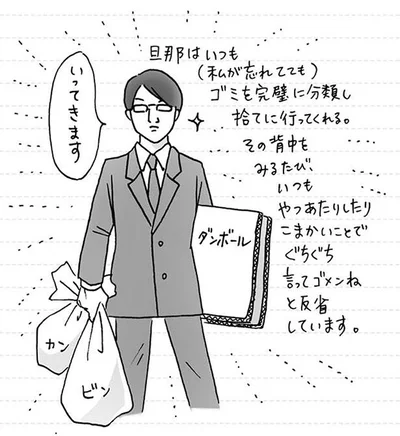 旦那はいつも
(私が忘れてても)
ゴミも完璧に分類し
捨てに行ってくれる。
その背中を
みるたび、
いつも
やつあたりしたり
こまかいことで
ぐちぐち
言ってゴメンね
と反省
しています。
いってきます
ダンボール
カン
ビン